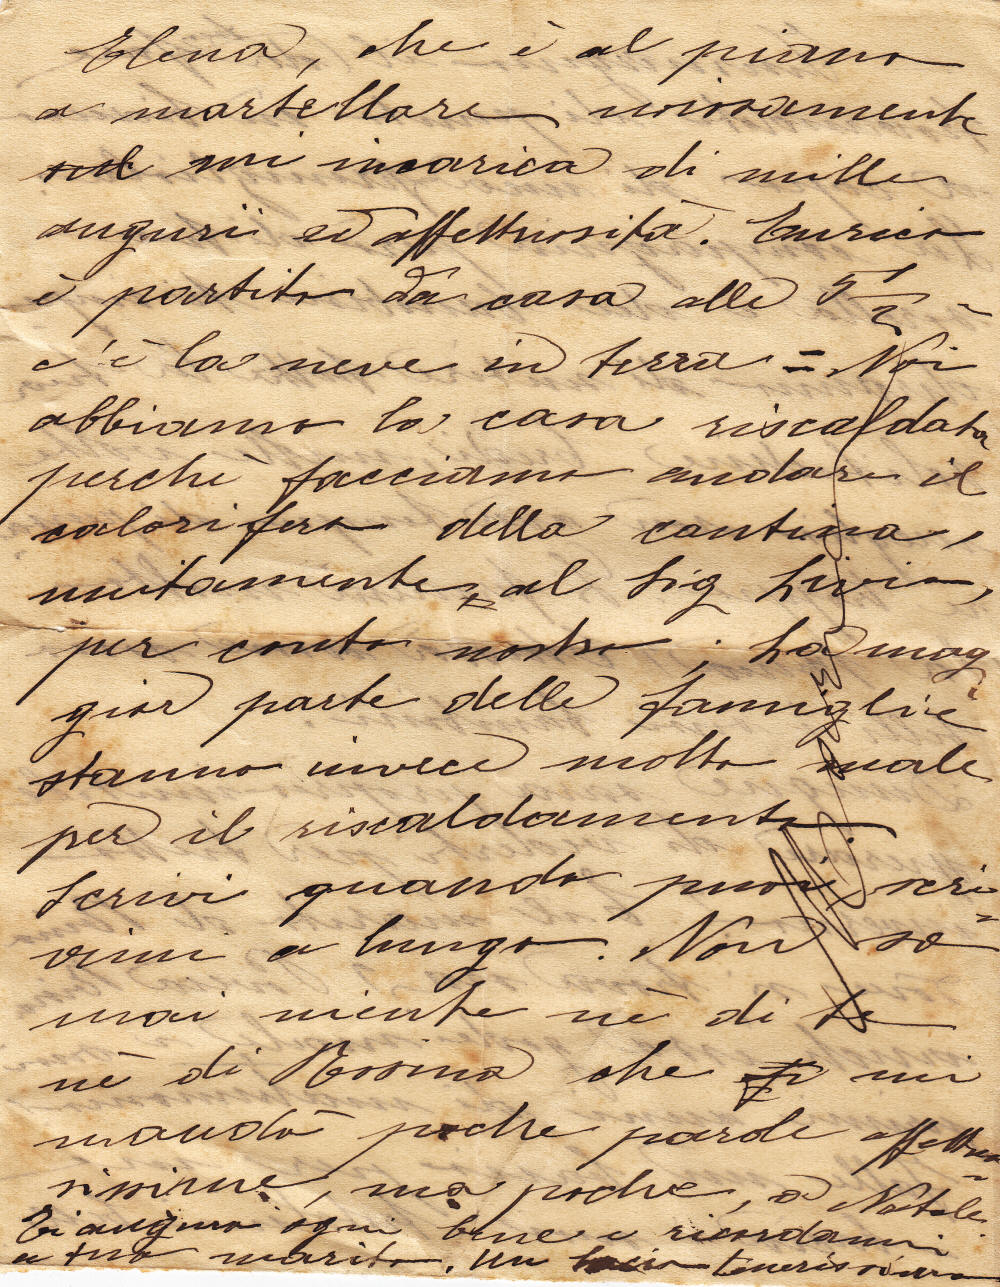 Elena, che è al piano
a martellare noiosamente
mi incarica di mille
augurii ed affettuosità. Enrico
è partito da casa alle 5 1/2 -
c'è la neve in terra = Noi
abbiamo la casa riscaldata
perchè facciamo andare il
calorifero della cantina,
unitamente al Sig Livio,
per conto nostro; la mag
gior parte delle famiglie
stanno invece molto male
per il riscaldamento
Scrivi quando puoi, scri=
vimi a lungo. Non so
mai niente nè di te
nè di Rosina che mi
mandò poche parole affettuo=
sissime, ma poche, a Natale
Ti auguro ogni bene e ricordami
a tuo marito. Un bacio tenerissimo